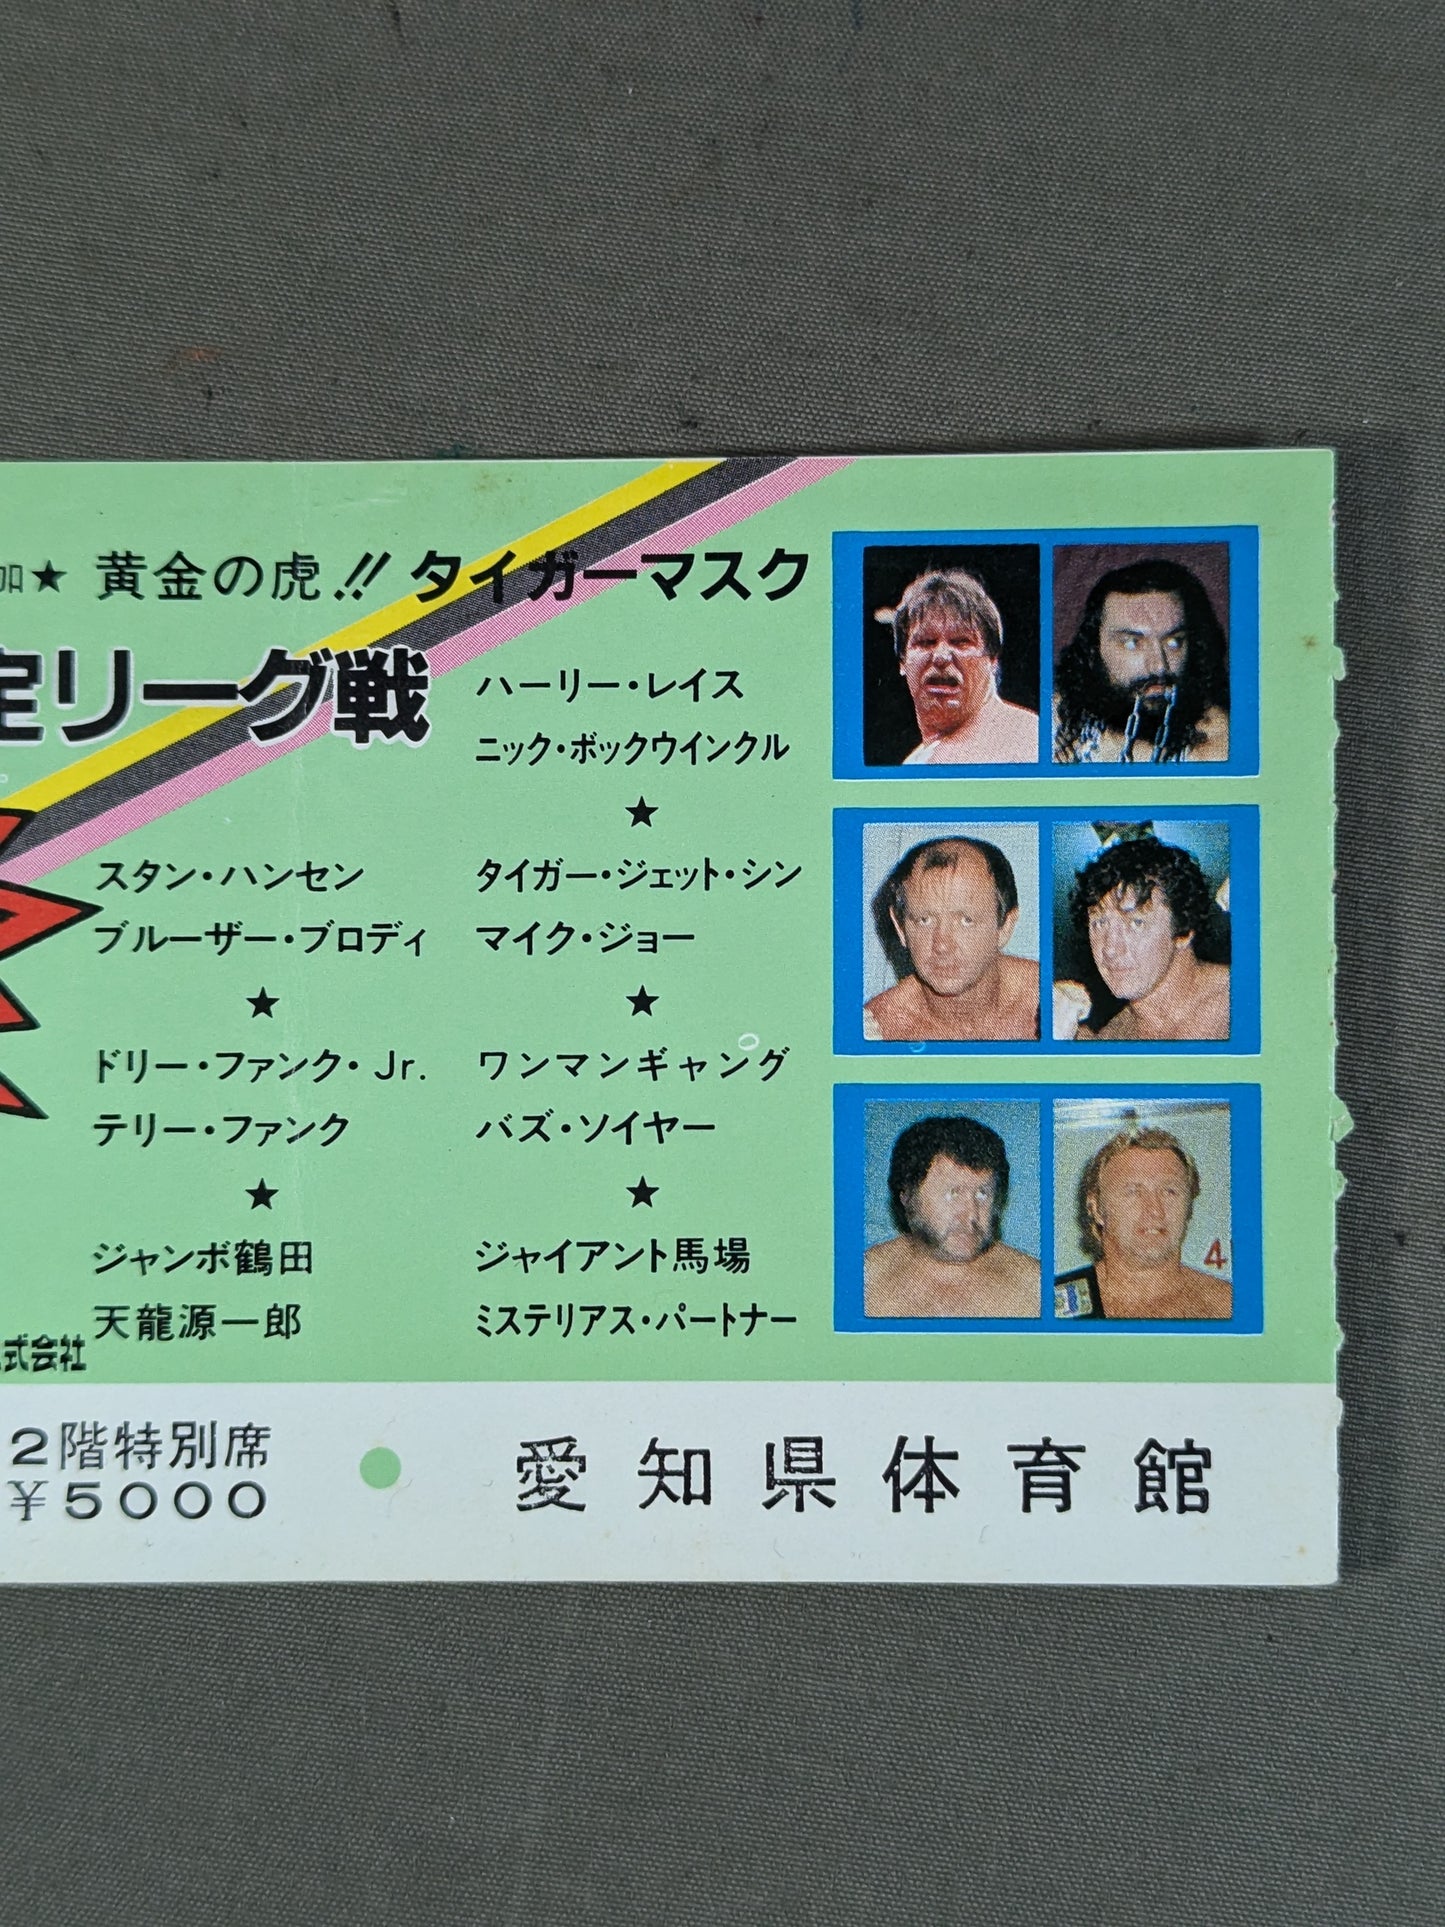 加★ 黄金の虎!! タイガーマスク
定リーグ戦
ハーリー・レイス
ニック・ボックウインクル
★
スタン・ハンセン
ブルーザー・ブロディ
★
ドリー・ファンク・Jr.
テリー・ファンク
★
ジャンボ鶴田
天龍源一郎
タイガー・ジェット・シン
マイク・ジョー
★
ワンマンギャング
バズ・ソイヤー
★
ジャイアント馬場
ミステリアス・パートナー
式会社
4
2階特別席
¥5000
愛知県体育館